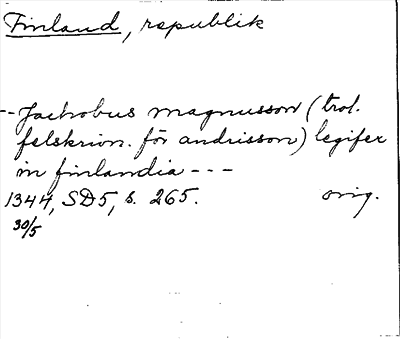 Finland, republik
-- Jachobus magnusson (trol.
felskrivn. för andrisson) legifer
in finlandia ---
1344, SD5, s. 265. orig.
30/5